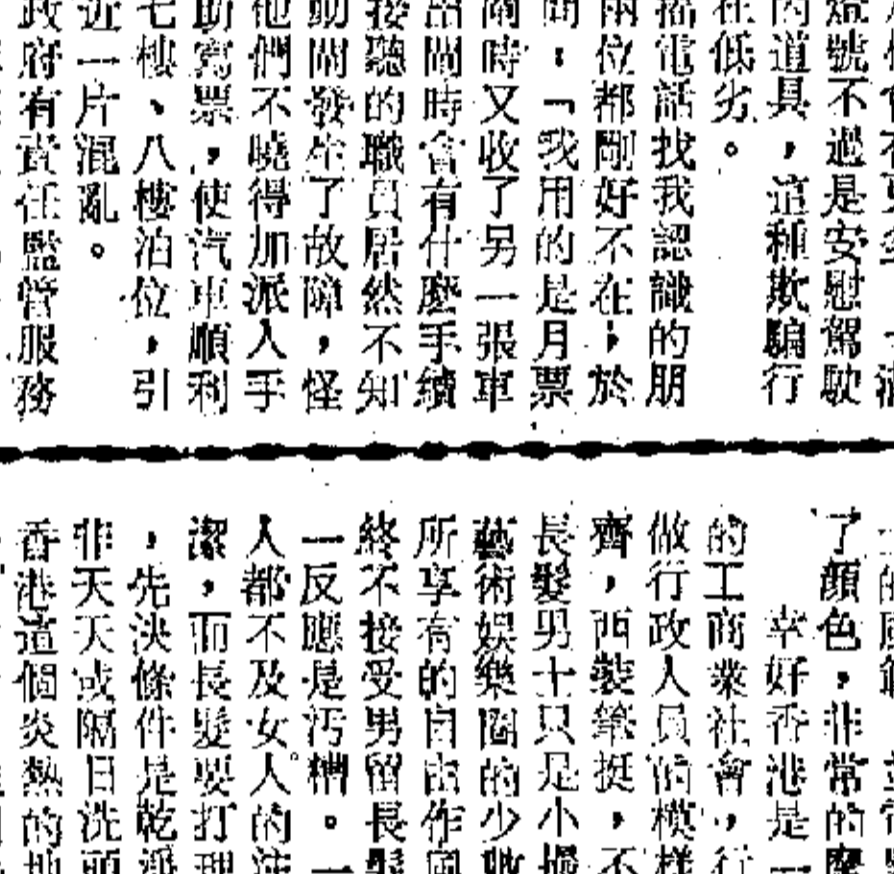 燈號不過是安慰駕駛
內道具，這種欺騙行
在低劣。
電話找我認識的朋
兩位都剛好不在，於
問：「我用的是月票
時又收了另一張車
出閘時會有什麼手續
接聽的職員居然不知
動閘發生了故障，怪
他們不曉得加派人手
助寫票，使汽車順利
七樓、八樓泊位，引
近一片混亂。
政府有責任監管服務
了顏色，非常的
幸好香港是一
的工商業社會，行
做行政人員的模樣
齊，西裝筆挺，不
長髮男士只是小撮
藝術娛樂圈的少數
所享有的自由作風
終不接受男留長髮
一反應是污糟。一
人都不及女人的
潔，而長髮要打理
，先決條件是乾淨
非天天或隔日洗頭
香港這個炎熱的地